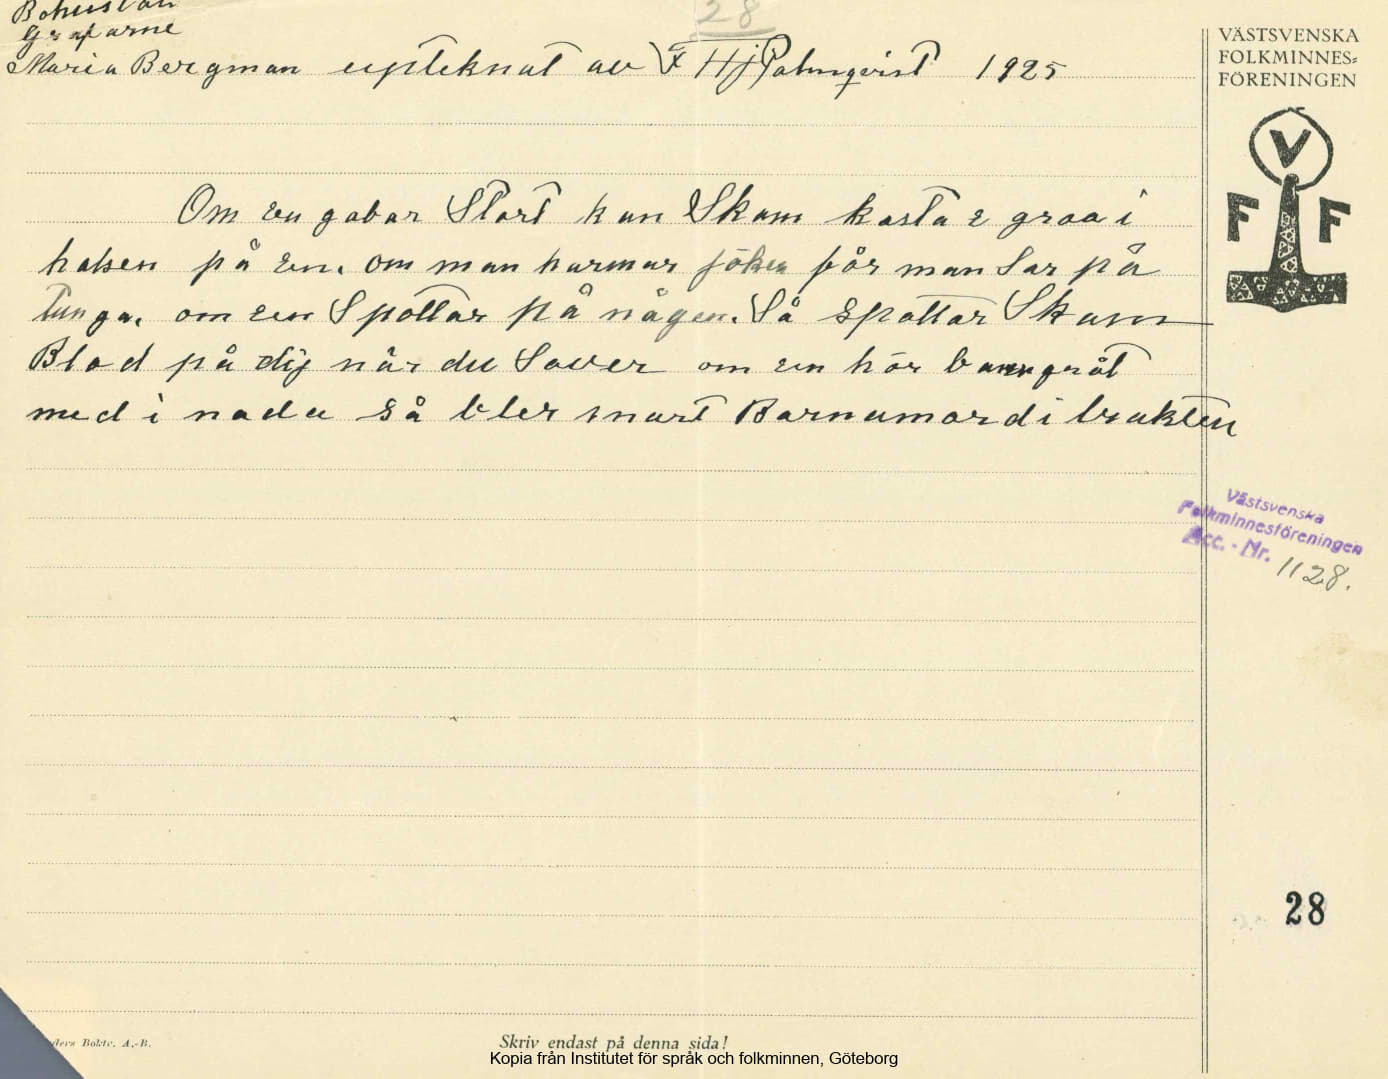 28
Bohuslän
Grafarne
Maria Bergman upteknat av F Hj Palmqvist 1925
VÄSTSVENSKA
FOLKMINNES=
FÖRENINGEN
V
F F
Om en gabar Stort kan Skam kasta e groa i
halsen på en. om man harmar jöken får man Sar på
tunga. om en Spottar på någen. Så spottar Skam
Blod på dig når du Sover om en hör barngråt
med i nada så bler snart Barnamord i trakten
Västsvenska
Folkminnesföreningen
Acc. - Nr. 1128.
28
ders Boktr. A.-B.
Skriv endast på denna sida!
Kopia från Institutet för språk och folkminnen, Göteborg